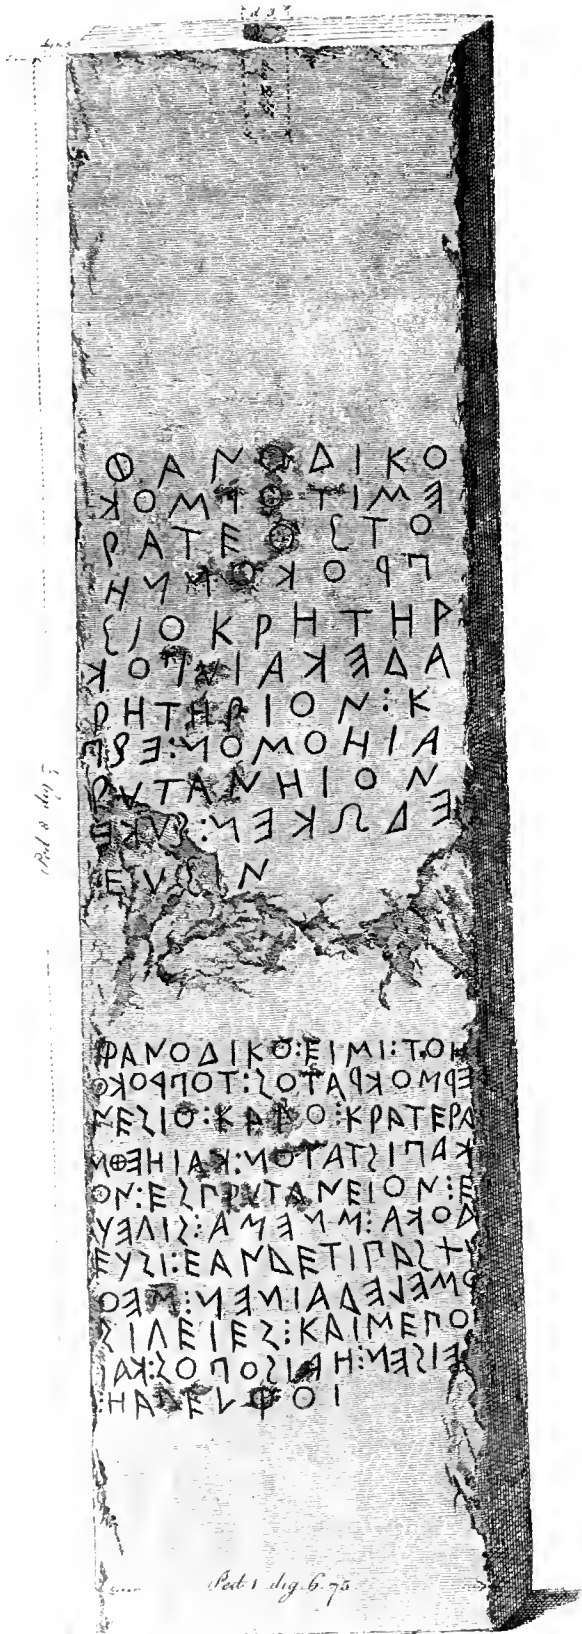 ΦΑΝΟΔΙΚΟ
ΕΜΙΤΟΡΜΟΚ
ΡΑΤΕΟΣΤΟ
ΠΡΟΚΟΝΝΗ
ΣΙΟΚΡΗΤΗΡ
ΑΔΕΚΑΙΥΠΟΚ
ΡΗΤΗΡΙΟΝ:Κ
ΑΙΗΟΜΟΝ:ΕΣΠ
ΡΥΤΑΝΗΙΟΝ
ΕΔΩΚΕΝ:ΣΥΚΕ
ΕΥΣΙΝ
ΦΑΝΟΔΙΚΟ:ΕΙΜΙ:ΤΟΗ
ΕΡΜΟΚΡΑΤΟΣ:ΤΟΠΡΟΚΟ
ΝΕΣΙΟ:ΚΑΓΟ:ΚΡΑΤΕΡΑ
ΚΑΠΙΣΤΑΤΟΝ:ΚΑΙΗΕΘΜ
ΟΝ:ΕΣΠΡΥΤΑΝΕΙΟΝ:Ε
ΔΟΚΑ:ΜΝΕΜΑ:ΣΙΓΕΥ
ΕΥΣΙ:ΕΑΝΔΕΤΙΠΑΣΧ
Ο:ΜΕΛΕΔΑΙΝΕΝ:ΜΕΟ
ΣΙΓΕΙΕΣ:ΚΑΙΜΕΠΟ
ΕΙΣΕΝ:ΗΑΙΣΟΠΟΣ:ΚΑΙ
:ΗΑΔΕΛΦΟΙ
Ped. 8 dig. 7
Ped. 1 dig. 6.75